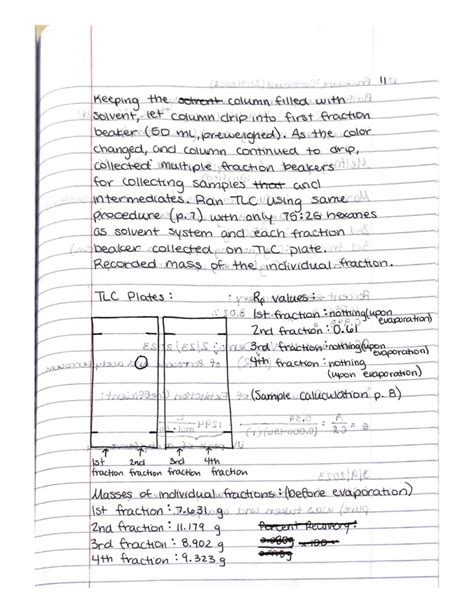 11
Keeping the solvent column filled with
solvent, let column drip into first fraction
beaker (50 mL, preweighed). As the color
changed, and column continued to drip,
collected multiple fraction beakers
for collecting samples that and
intermediates. Ran TLC using same
procedure (p.7) with only 75:25 hexanes
as solvent system and each fraction
beaker collected on TLC plate.
Recorded mass of the individual fraction.
TLC Plates:
Rf values:
1st fraction: nothing (upon evaporation)
2nd fraction: 0.61
3rd fraction: nothing (upon evaporation)
4th fraction: nothing
(upon evaporation)
(Sample caluculation p. 8)
1st fraction 2nd fraction 3rd fraction 4th fraction
Masses of individual fractions: (before evaporation)
1st fraction: 7.631 g
2nd fraction: 11.179 g
3rd fraction: 8.902 g
4th fraction: 9.323 g
Percent Recovery:
x 100